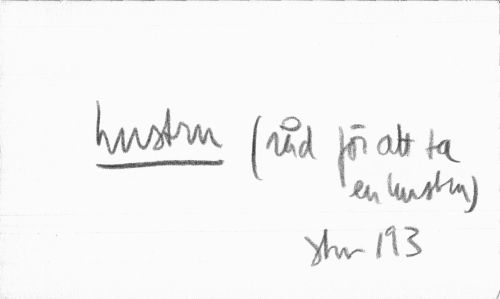 hustru (råd för att ta
en hustru)
193